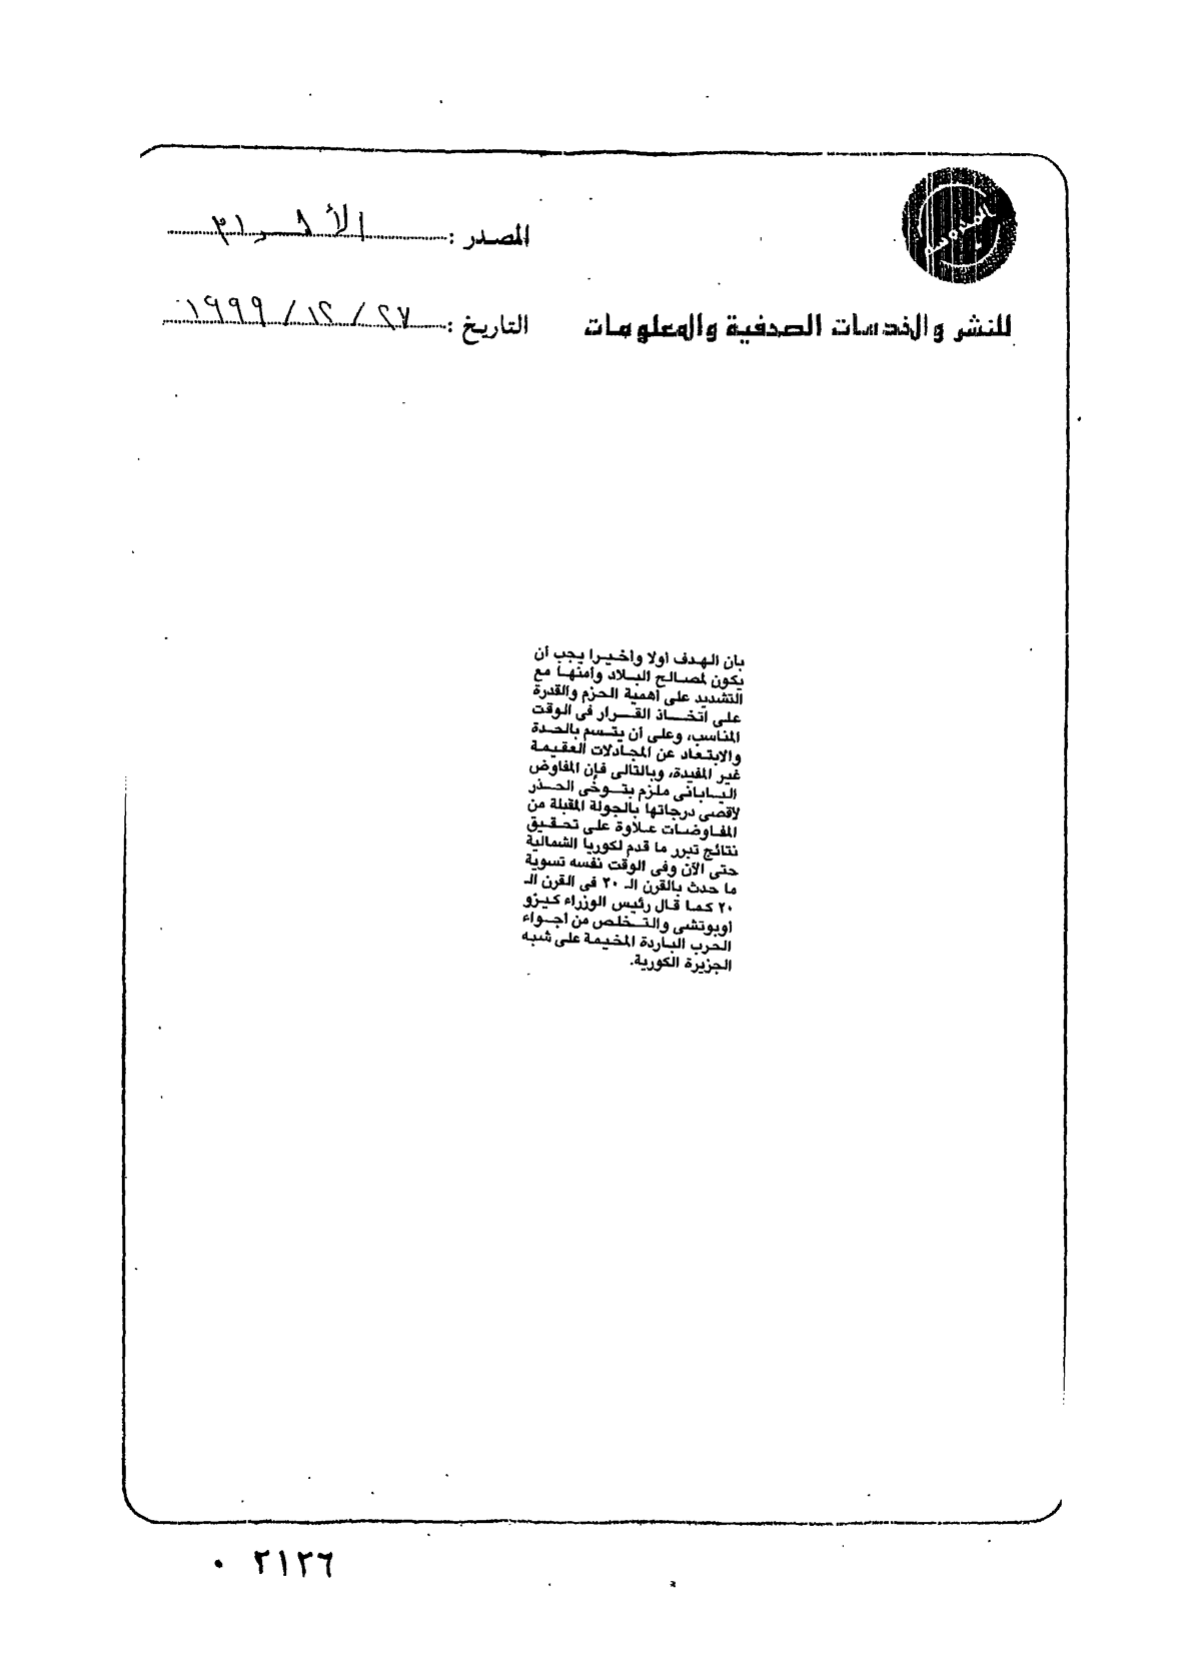 المدوسه
المصدر : الأهرام
للنشر والخدمات الصحفية والمعلومات
التاريخ : ٢٧ / ١٢ / ١٩٩٩
بان الهدف اولا واخيرا يجب أن
يكون لمصالح البلاد وامنها مع
التشديد على اهمية الحزم والقدرة
على اتخاذ القرار فى الوقت
المناسب، وعلى أن يتسم بالحدة
والابتعاد عن المجادلات العقيمة
غير المفيدة، وبالتالى فإن المفاوض
اليابانى ملزم بتوخى الحذر
لاقصى درجاتها بالجولة المقبلة من
المفاوضات علاوة على تحقيق
نتائج تبرر ما قدم لكوريا الشمالية
حتى الآن وفى الوقت نفسه تسوية
ما حدث بالقرن الـ ٢٠ فى القرن الـ
٢٠ كما قال رئيس الوزراء كيزو
اوبوتشى والتخلص من اجواء
الحرب الباردة المخيمة على شبه
الجزيرة الكورية.
٢١٢٦ ٠